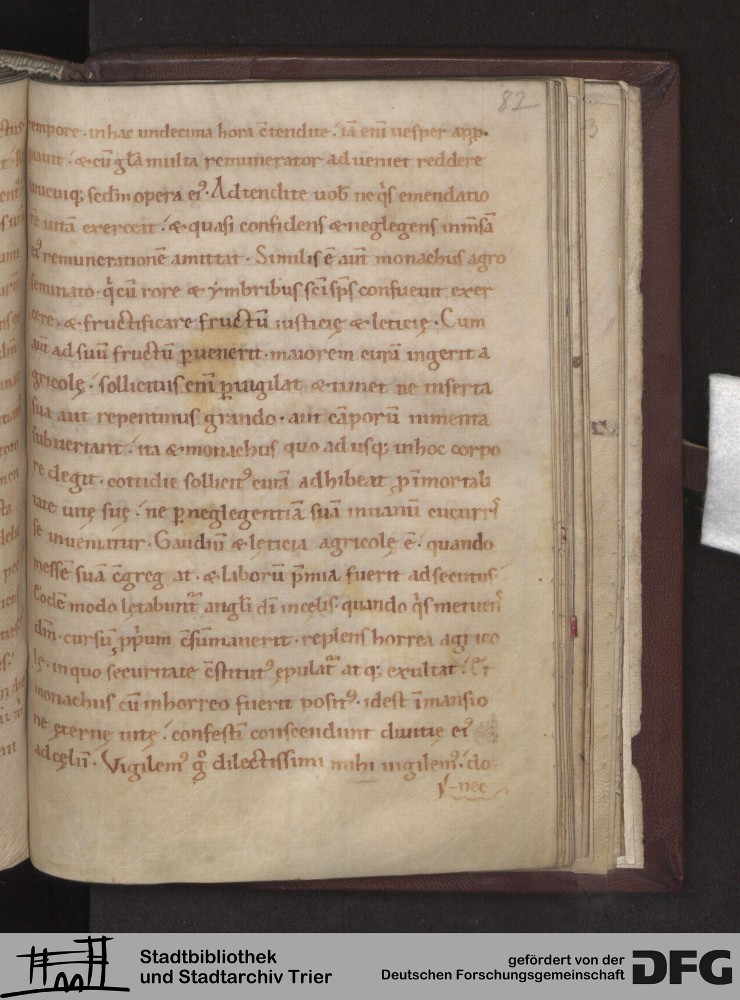 82
tempore · in hac undecima hora c̄tendite · iā eni᷑ uesper app̄
; & cū gl̄a multa remunerator adueniet reddere
unicuiq; sedm̄ opera ei᷒ · Adtendite uob̄ ne q̊s emendatio
nē uitā exerceat · & quasi confidens & neglegens inm̄sā
ei᷒ remunerationē amittat · Similis ē aut̄ monachus agro
seminato · q̊ cū rore & ymbribus sc̄i sp̄s consueuit exer
cere · & fructificare fructū iusticię & leticię · Cum
aut̄ ad suū fructū ꝑuenerit · maiorem curā ingerit a
gricolę · sollicitus eni᷑ ꝑuigilat & timet ne inserta
sua aut repentinus grando · aut cāporū iumenta
subuertant · ita & monachus quo adusq; in hoc corpo
re degit · cottidie sollicit᷒ curā adhibeat ꝓ īmortali
tate uitę suę · ne ꝑ neglegentiā suā in uanū cucurri
se inueniatur · Gaudiū & lęticia agricolę ē · quando
messē suā c̄greg at · & laborū p̄mia fuerit adsecutus
Eodē modo lętabunt᷑ angl̄i dī in cęlis · quando q̊s metuen᷒
dm̄ · cursū ꝓpⁱum c̄sūmauerit · replens horrea agrico
lę · in quo securitate c̄stitut᷒ ępulat᷑ atq; exultat · Et
monachus cū in horreo fuerit posit᷒ · id est ī mansio
ne ęternę uitę · confestī conscendunt diuitię ei᷒
ad cęlū · Vigilem᷒ g̊ dilectissimi mihi uigilem᷒ · do
nec
3
Stadtbibliothek
und Stadtarchiv Trier
gefördert von der
Deutschen Forschungsgemeinschaft
DFG